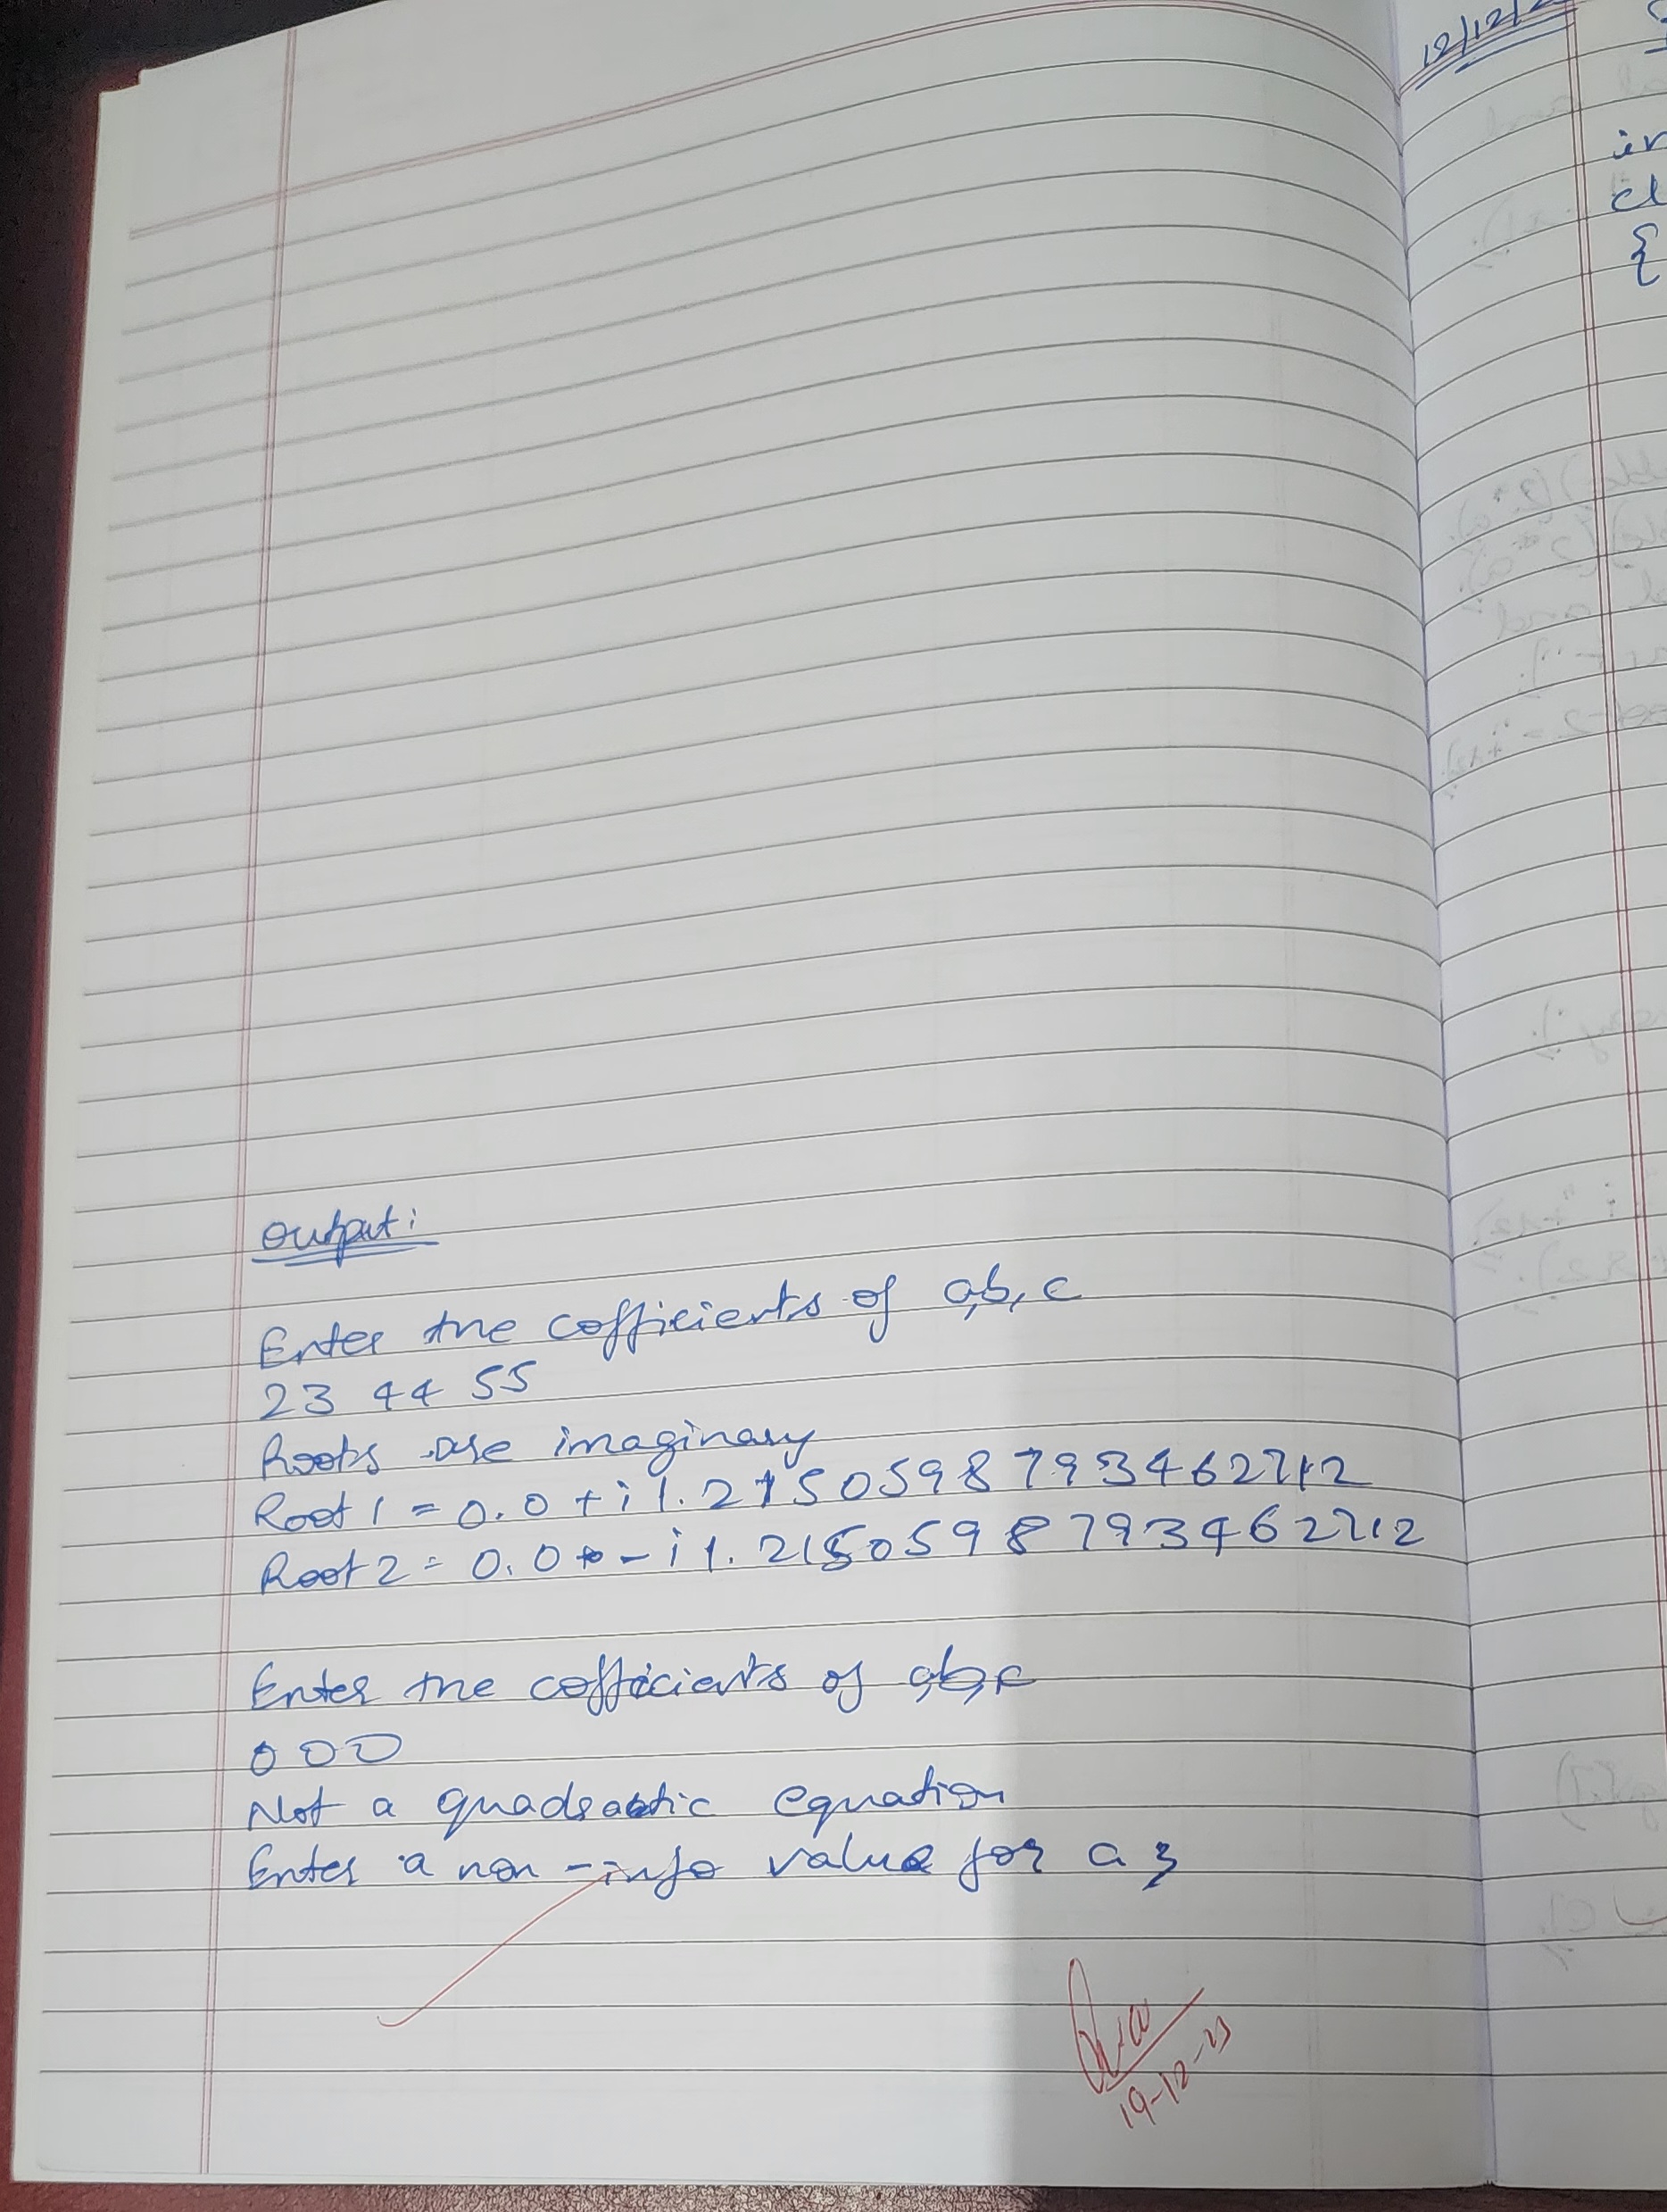 Output:
Enter the cofficients of a,b, c
23 44 55
Roots are imaginary
Root 1 = 0.0 + i 1.2150598793462712
Root 2 = 0.0 - i 1.2150598793462712
Enter the cofficients of a,b,c
0 0 0
Not a quadratic equation
Enter a non - info value for a 3
19-12-23
12/12/2
in
cl
{